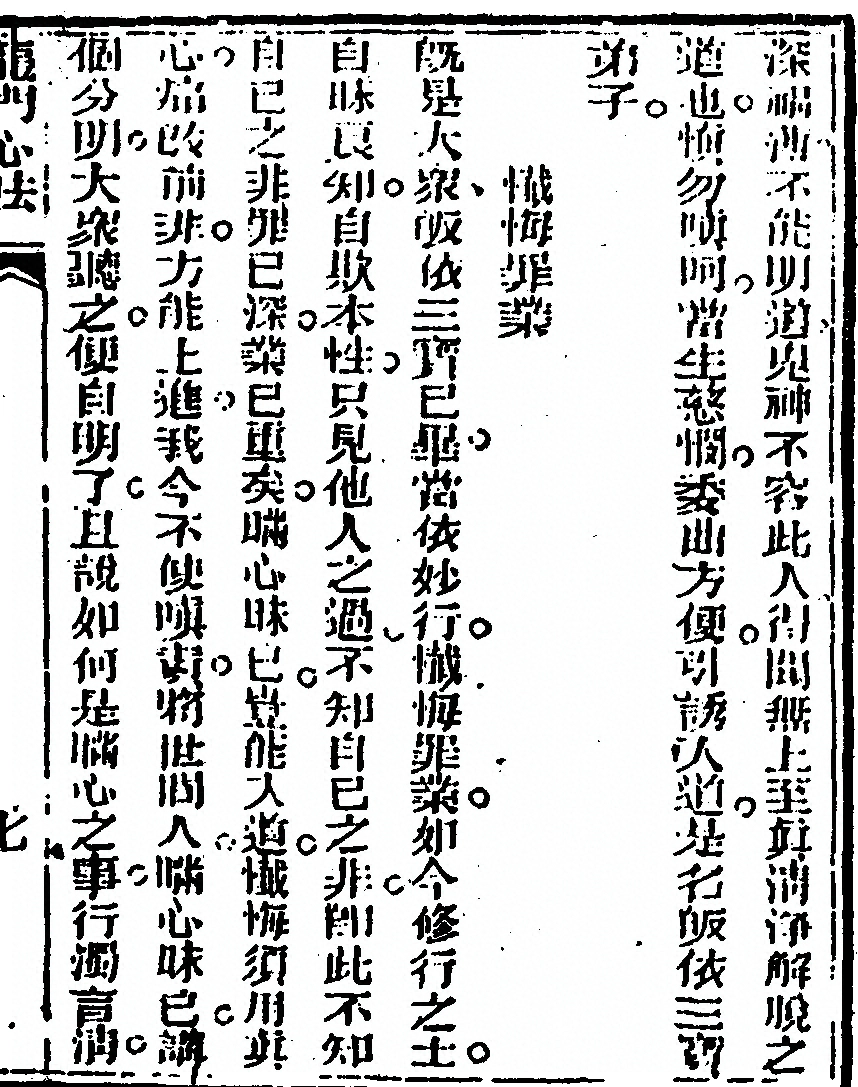 深禍善不能明道鬼神不容此人得聞無上至真清淨解脫之
道也慎勿嗔呵當生慈憫委曲方便引誘入道是名皈依三寶
弟子
懺悔罪業
既是大眾皈依三寶已畢當依妙行懺悔罪業如今修行之士
自昧良知自欺本性只見他人之過不知自己之非即此不知
自己之非罪已深業已重矣瞞心昧己豈能入道懺悔須用真
心痛改前非方能上進我今不使嗔責將世間人瞞心昧己講
個分明大眾聽之便自明了且說如何是瞞心之事行濁言清
龍門心法
七